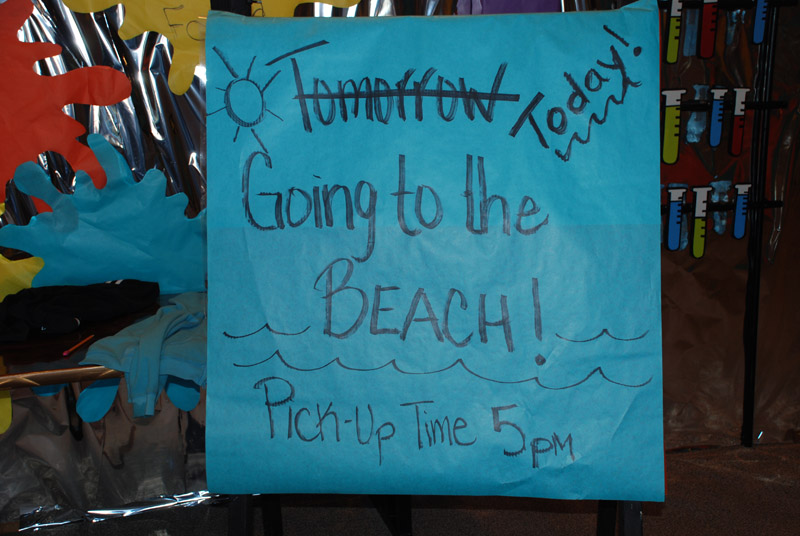 Tomorrow Today!
Going to the
BEACH!
Pick-Up Time 5pm